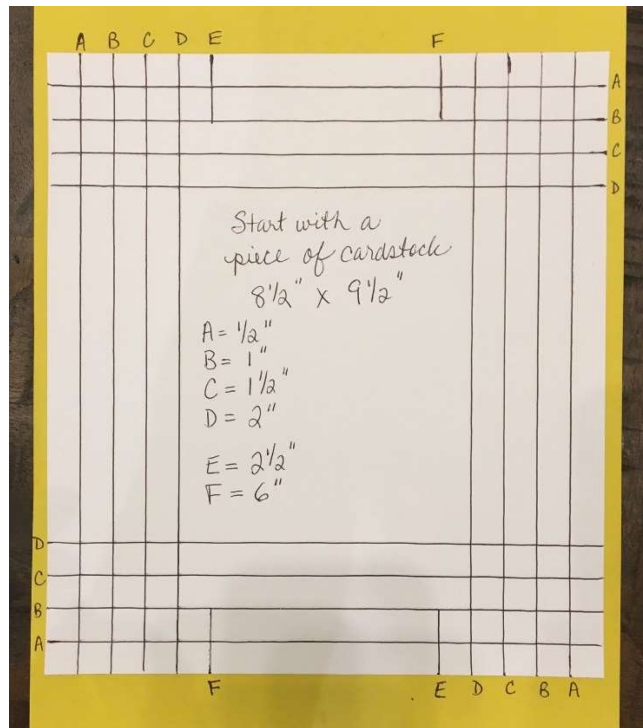 A B C D E F
A
B
C
D
Start with a
piece of cardstock
8 1/2" x 9 1/2"
A = 1/2"
B = 1"
C = 1 1/2"
D = 2"
E = 2 1/2"
F = 6"
D
C
B
A
F E D C B A